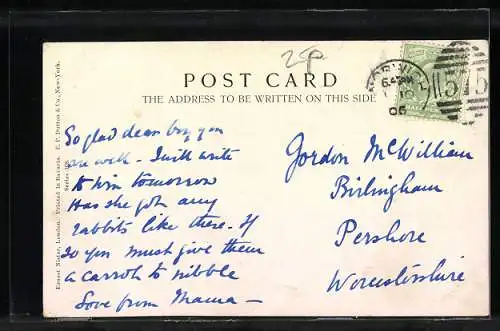 25p
POST CARD
THE ADDRESS TO BE WRITTEN ON THIS SIDE
So glad dear boy you
are well - I will write
to him tomorrow
Has she got any
rabbits like these. If
so you must give them
a carrot to nibble
Love from Mama -
Gordon McWilliam
Birlingham
Pershore
Worcestershire
Ernest Nister, London. Printed in Bavaria. E. P. Dutton & Co., New-York.
NORWICH
06